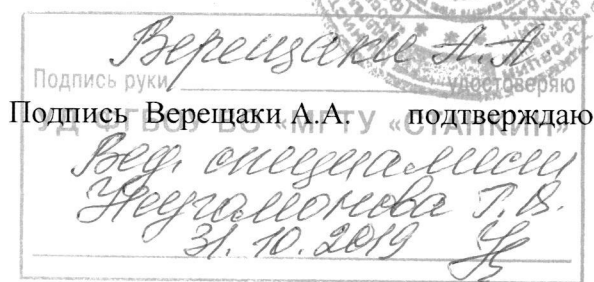 Верещаки А.А
Подпись руки удостоверяю
Подпись Верещаки А.А. подтверждаю
УД ФГБОУ ВО «МГТУ «СТАНКИН»
Вед. специалист
31. 10. 2019